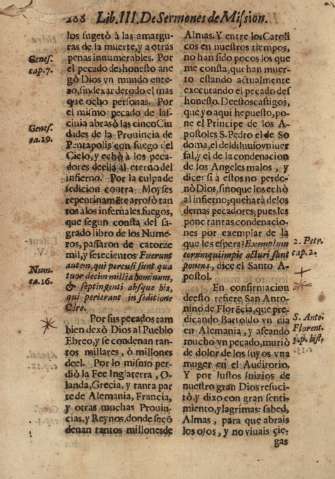 208 Lib. III. De Sermones de Mission.
los sugetò à las amargu-
ras de la muerte, y a otras
penas innumerables. Por
el pecado deshonesto ane-
gò Dios vn mundo ente-
ro, sin dexar de todo el mas
que ocho personas. Por
el mismo pecado de las-
civia abrasò las cinco Ciu-
dades de la Prouincia de
Pentapolis con fuego del
Cielo, y echò à los peca-
dores de ella al eterno del
infierno. Por la culpa de
sedicion contra Moyses
repentinamẽte arrojò tan-
tos à los infernales fuegos,
que segun consta del sa-
grado libro de los Nume-
ros, passaron de catorze
mil, y setecientos Fuerunt
autem, qui percussi sunt qua-
tuor decim millia hominum,
& septingenti absque his,
qui perierant in seditione
Core.
Por sus pecados tam-
bien dexò Dios al Pueblo
Ebreo, y se condenan tan-
tos millares, ò millones
de el. Por lo mismo per-
diò la Fee Inglaterra, O-
landa, Grecia, y tanta par-
te de Alemania, Francia,
y otras muchas Prouin-
cias, y Reynos, donde se cõ
denan tantos millones de
Genes.
cap. 7.
Genes.
ca. 19.
Num.
ca. 16.
Almas. Y entre los Catoli-
cos en nuestros tiempos,
no han sido pocos los que
me consta, que han muer-
to estando actualmente
executando el pecado des-
honesto. De estos castigos,
que yo aqui he puesto, po-
ne el Principe de los Apos-
toles S. Pedro el de So
doma, el del diluuio vniuer
sal, y el de la condenacion
de los Angeles malos, y
dice: si à estos no perdo-
nò Dios, sino que los echò
al infierno; que harà de los
demas pecadores, pues los
pone tantas condenacio-
nes por exemplar de la
que les espera? Exemplum
eorum, qui impiè acturi sunt
ponens, dice el Santo A-
postol.
En confirmacion
de esto refiere San Anto-
nino de Florẽcia, que pre-
dicando Bartoldo vn dia
en Alemania, y afeando
mucho vn pecado, muriò
de dolor de los suyos vna
muger en el Auditorio.
Y por justos juizios de
nuestro gran Dios resuci-
tò, y dixo con gran senti-
miento, y lagrimas: sabed,
Almas, para que abrais
los ojos, y no viuais cie-
gas
2. Petr.
cap. 2.
S. Anto.
Florent.